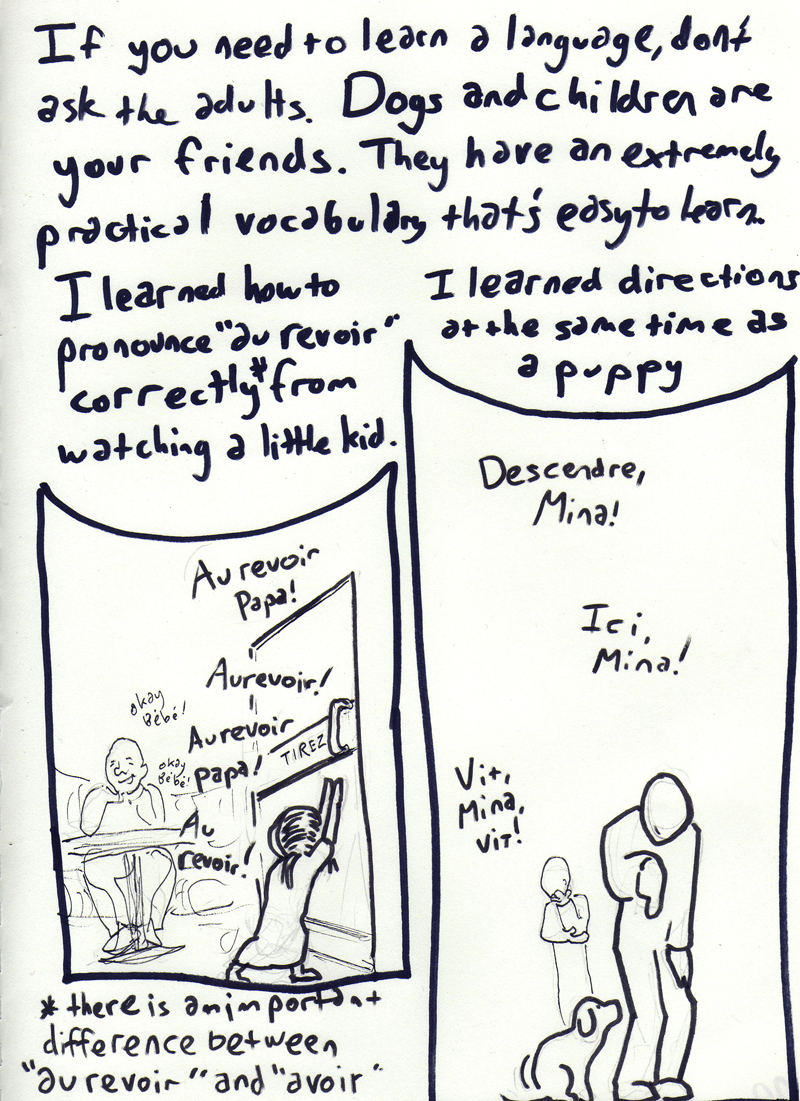 If you need to learn a language, don't
ask the adults. Dogs and children are
your friends. They have an extremely
practical vocabulary that's easy to learn.
I learned how to
pronounce "au revoir"
correctly* from
watching a little kid.
Au revoir
Papa!
Au revoir!
okay
Bébé!
Au revoir
Papa!
TIREZ
okay
Bébé!
Au
revoir!
* there is an important
difference between
"au revoir" and "avoir"
I learned directions
at the same time as
a puppy
Descendre,
Mina!
Ici,
Mina!
Vit,
Mina,
vit!